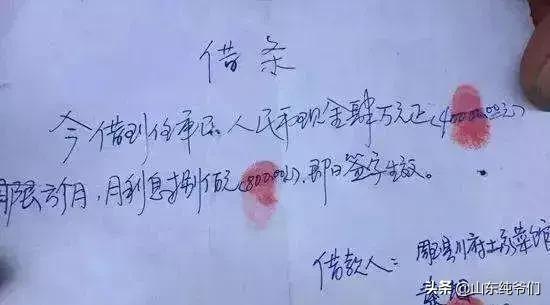 借条
今借到任承召人民币现金肆万元正(40000.00元)
期限六个月,月利息捌佰元(800.00元),即日签字生效。
借款人:郾县川府土家菜馆
头条@山东纯爷们